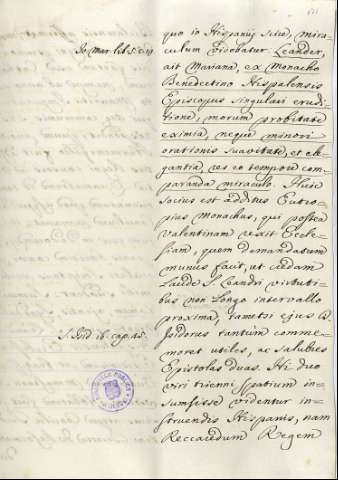 Jo. Mar. lib. 5. c. 13
quo in Hispanijs scire, mira-
culum videbatur. Leander,
ait Mariana, ex Monacho
Benedictino Hispalensis
Episcopus singulari erudi-
tione, morum probitate
eximia, neque minori
orationis suavitate, et ele-
gantia, res eo tempore com-
paranda miraculo. Huic
socius est additus Eutro-
pius Monachus, qui postea
Valentinam rexit Eccle-
siam, quem demandatum
munus
laude S. Leandri virtuti-
bus non longo intervallo
proxima, tametsi ejus
S. Isid. cap. 45.
Isidorus tantum comme-
moret utiles, ac salubres
Epistolas duas. Hi duo
viri triennij spatium in-
sumpsisse videntur in-
struendis Hispanis, nam
Reccaredum Regem